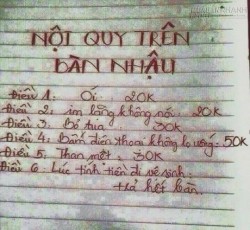 NỘI QUY TRÊN
BÀN NHẬU
Điều 1: Ói 20K
Điều 2: im lặng không nói 20K
Điều 3: Bỏ tua 30K
Điều 4: Bấm điện thoại không lo uống = 50K
Điều 5: Than mệt = 30K
Điều 6: Lúc tính tiền đi vệ sinh
trả hết bàn.